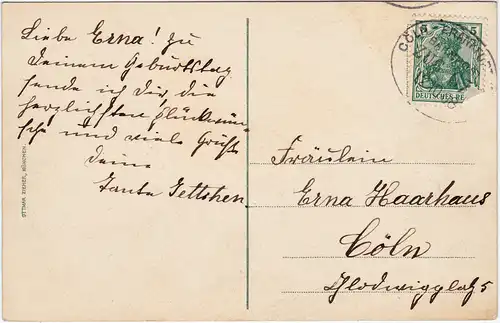 Liebe Erna! Zu
Deinem Geburtstag
sende ich Dir die
herzlichsten Glückwün-
sche und viele Grüße
Deine
Tante Jettchen
OTTMAR ZIEHER, MÜNCHEN.
CÖLN
DEUTSCHES RE
Fräulein
Erna Haarhaus
Cöln
Chlodwigplatz 5